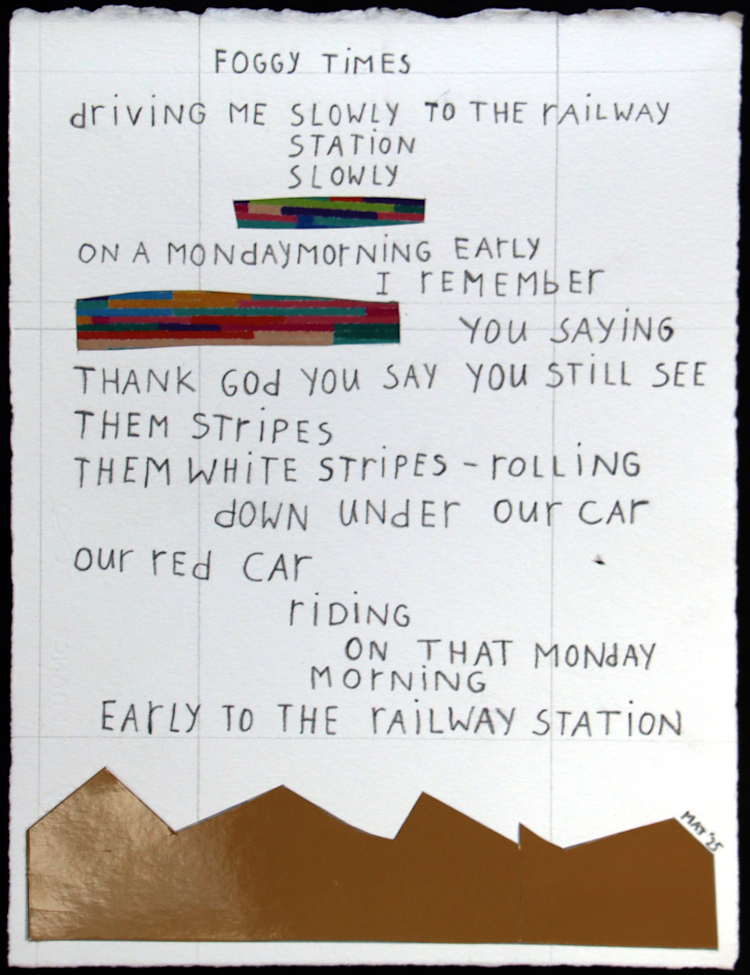 FOGGY TiMES
driViNG ME SLOWLY TO THE rAiLWAY
STATiON
SLOWLY
ON A MONdAYMOrNiNG EArLY
I rEMEMbEr
YOU SAYiNG
THANK GOd YOU SAY YOU STiLL SEE
THEM STriPES
THEM WHiTE STriPES - rOLLiNG
dOWN UNdEr OUr CAr
OUr rEd CAr
riDiNG
ON THAT MONdAY
MOrNiNG
EArLY TO THE rAiLWAY STATiON
MAT '25